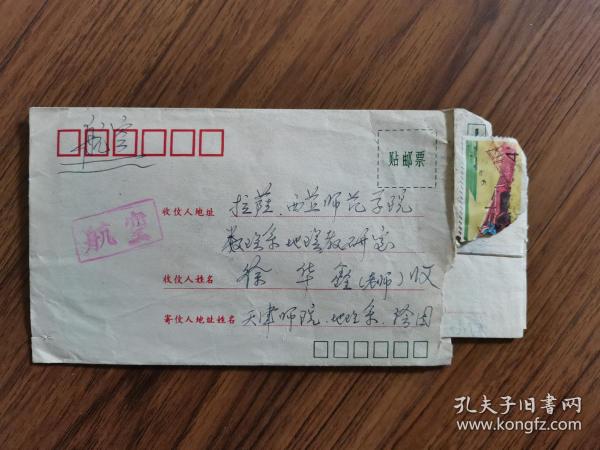 航空
贴邮票
收伩人地址 拉萨.西芷师范学院
航空
数理系地理教研室
收伩人姓名 徐华鑫(老师)收
寄伩人地址姓名 天津师院.地理系
孔夫子旧书网
www.kongfz.com